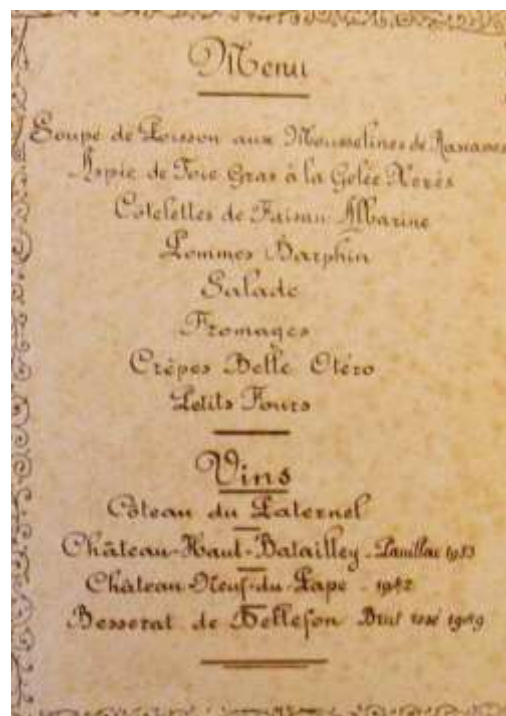 Menu
Soupe de Poisson aux Mousselines de Rascasses
Aspic de Foie Gras à la Gelée Xérès
Côtelettes de Faisan
Pommes Darphin
Salade
Fromages
Crêpes Belle Otéro
Petits Fours
Vins
Côteau du Paternel
Château-Haut-Batailley - Pauillac 1953
Château-Neuf-du-Pape - 1962
Besserat de Bellefon Brut rosé